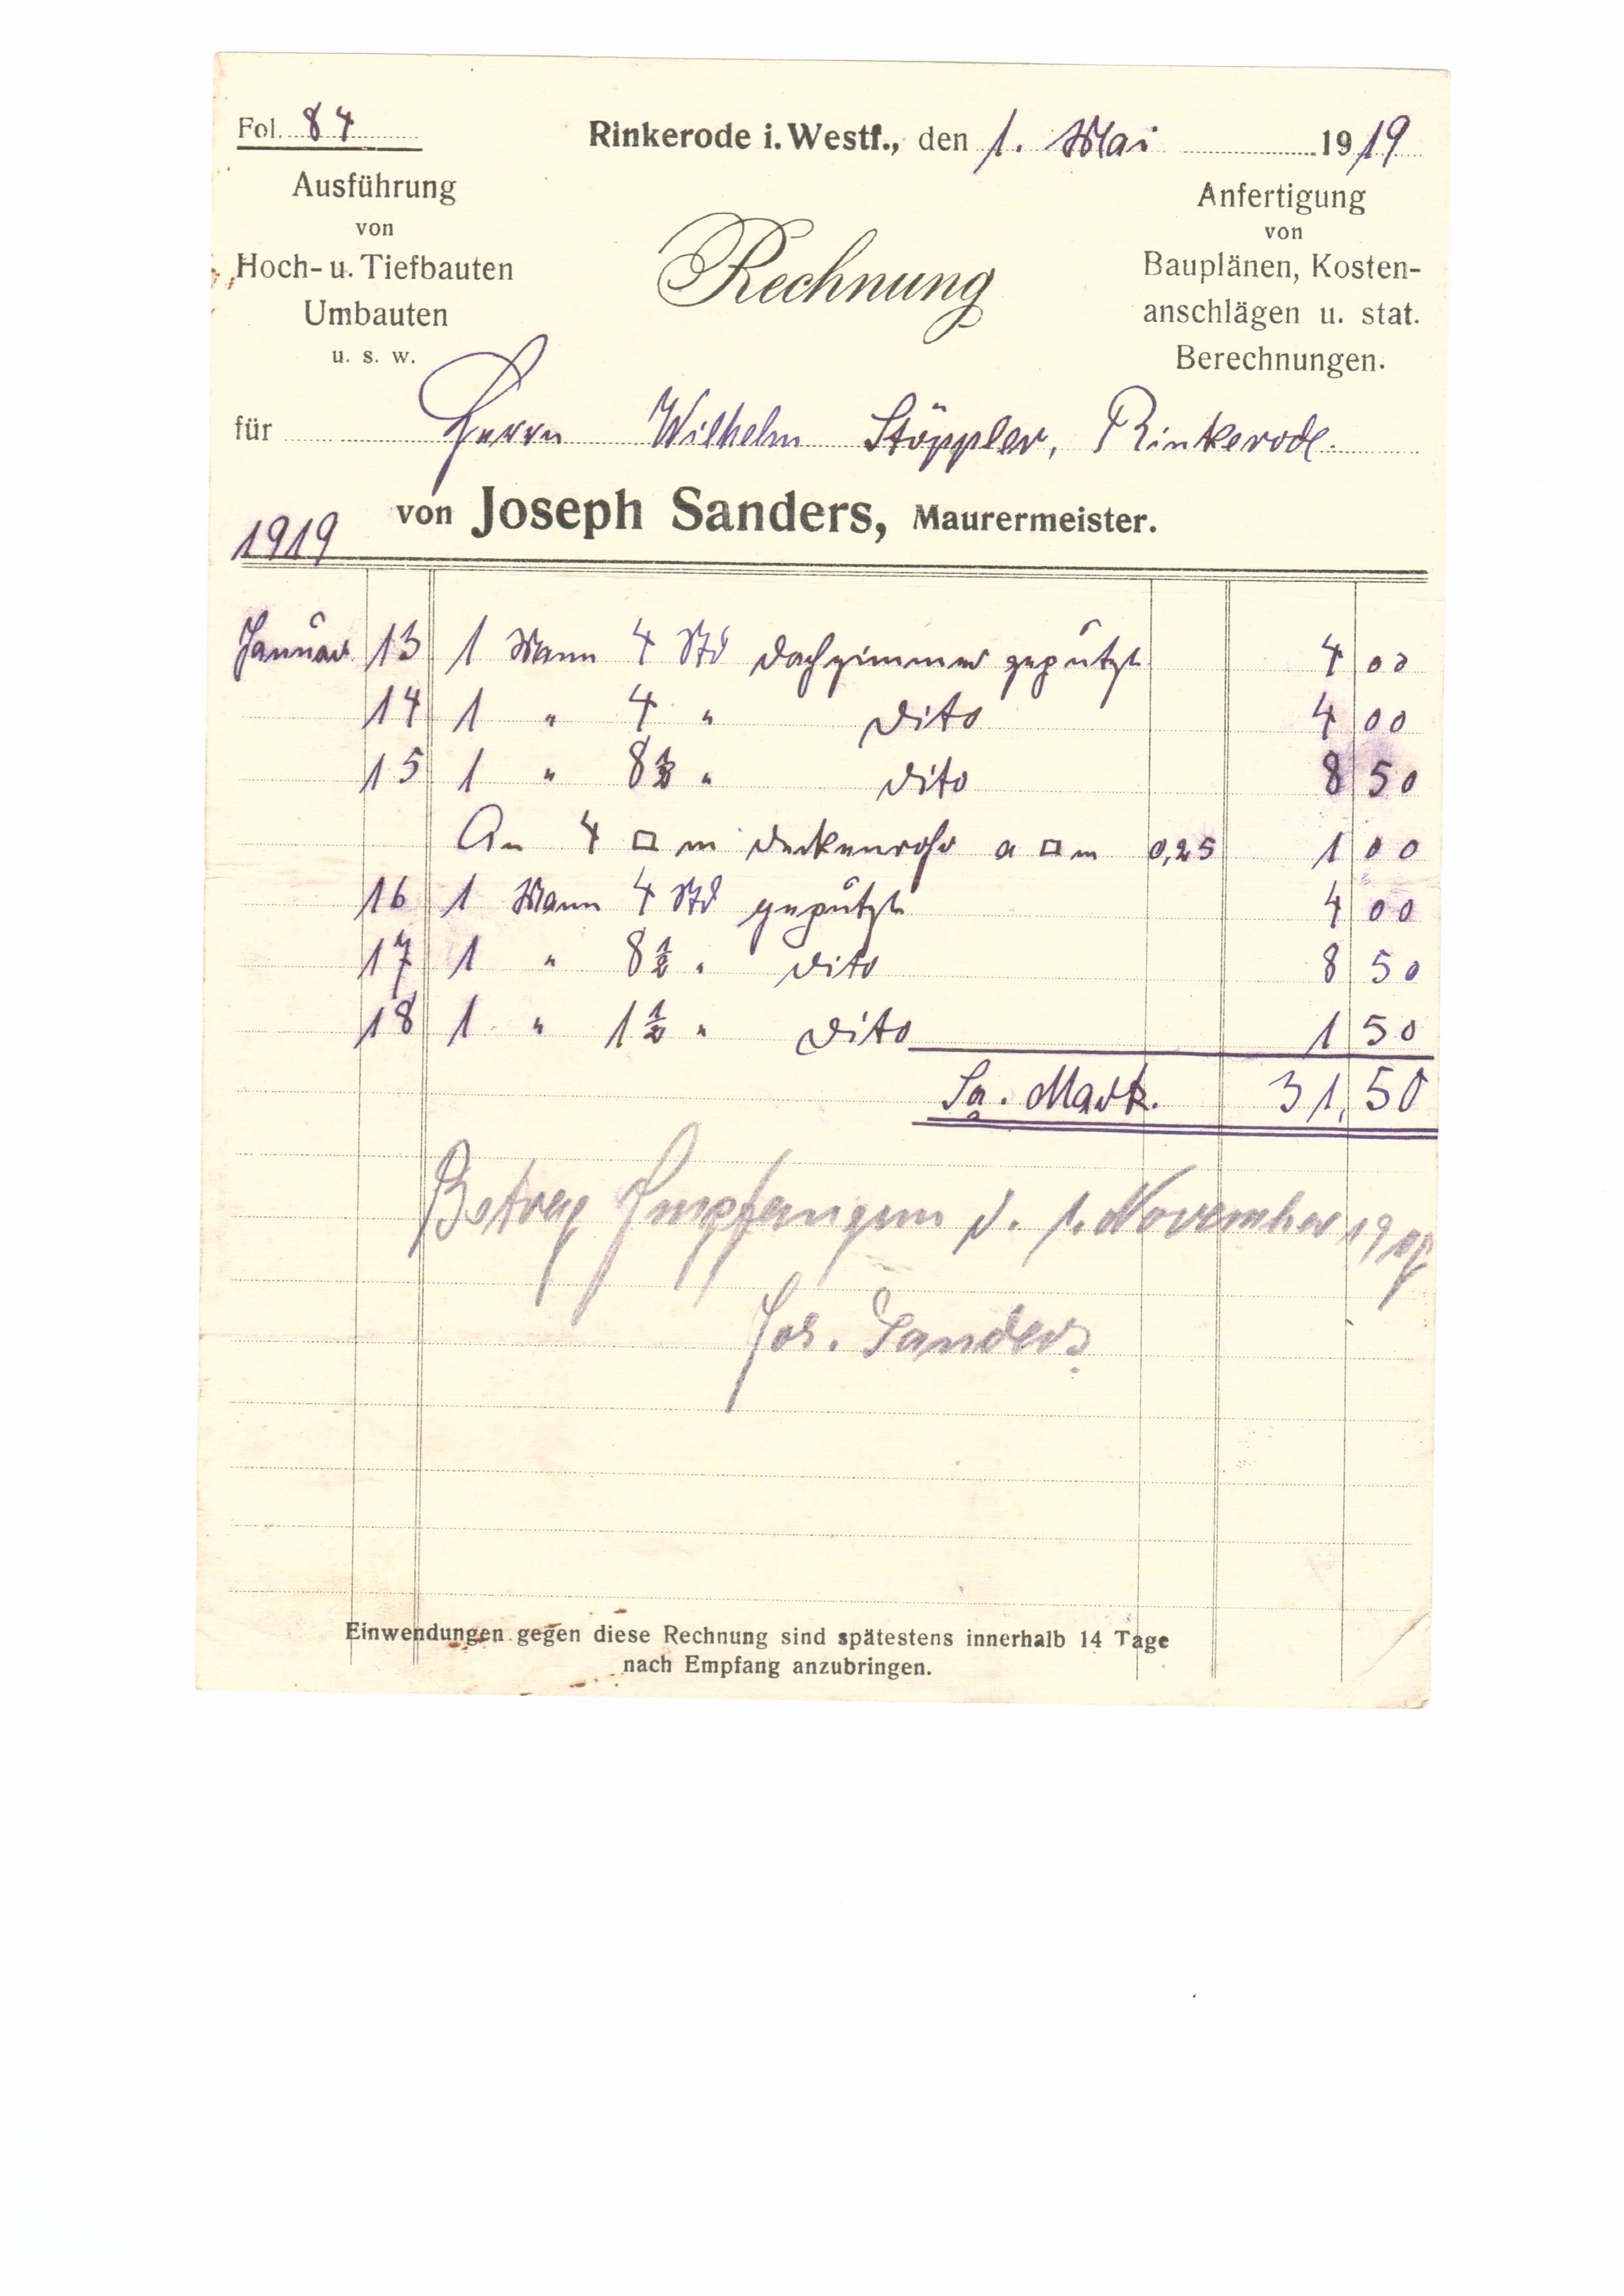 Fol. 84
Rinkerode i. Westf., den 1. Mai 1919
Ausführung
von
Hoch- u. Tiefbauten
Umbauten
u. s. w.
Rechnung
Anfertigung
von
Bauplänen, Kosten-
anschlägen u. stat.
Berechnungen.
für Herrn Wilhelm Stöppler, Rinkerode.
von Joseph Sanders, Maurermeister.
1919
Januar 13 1 Mann 4 Std Dachzimmer geputzt 4 00
14 1 " 4 " dito 4 00
15 1 " 8 1/2 " dito 8 50
An 4 □ m Deckenrohr a □ m 0,25 1 00
16 1 Mann 4 Std geputzt 4 00
17 1 " 8 1/2 " dito 8 50
18 1 " 1 1/2 " dito 1 50
Sa. Mark. 31,50
Betrag Empfangen d. 1. November 1919
Jos. Sanders
Einwendungen gegen diese Rechnung sind spätestens innerhalb 14 Tage
nach Empfang anzubringen.